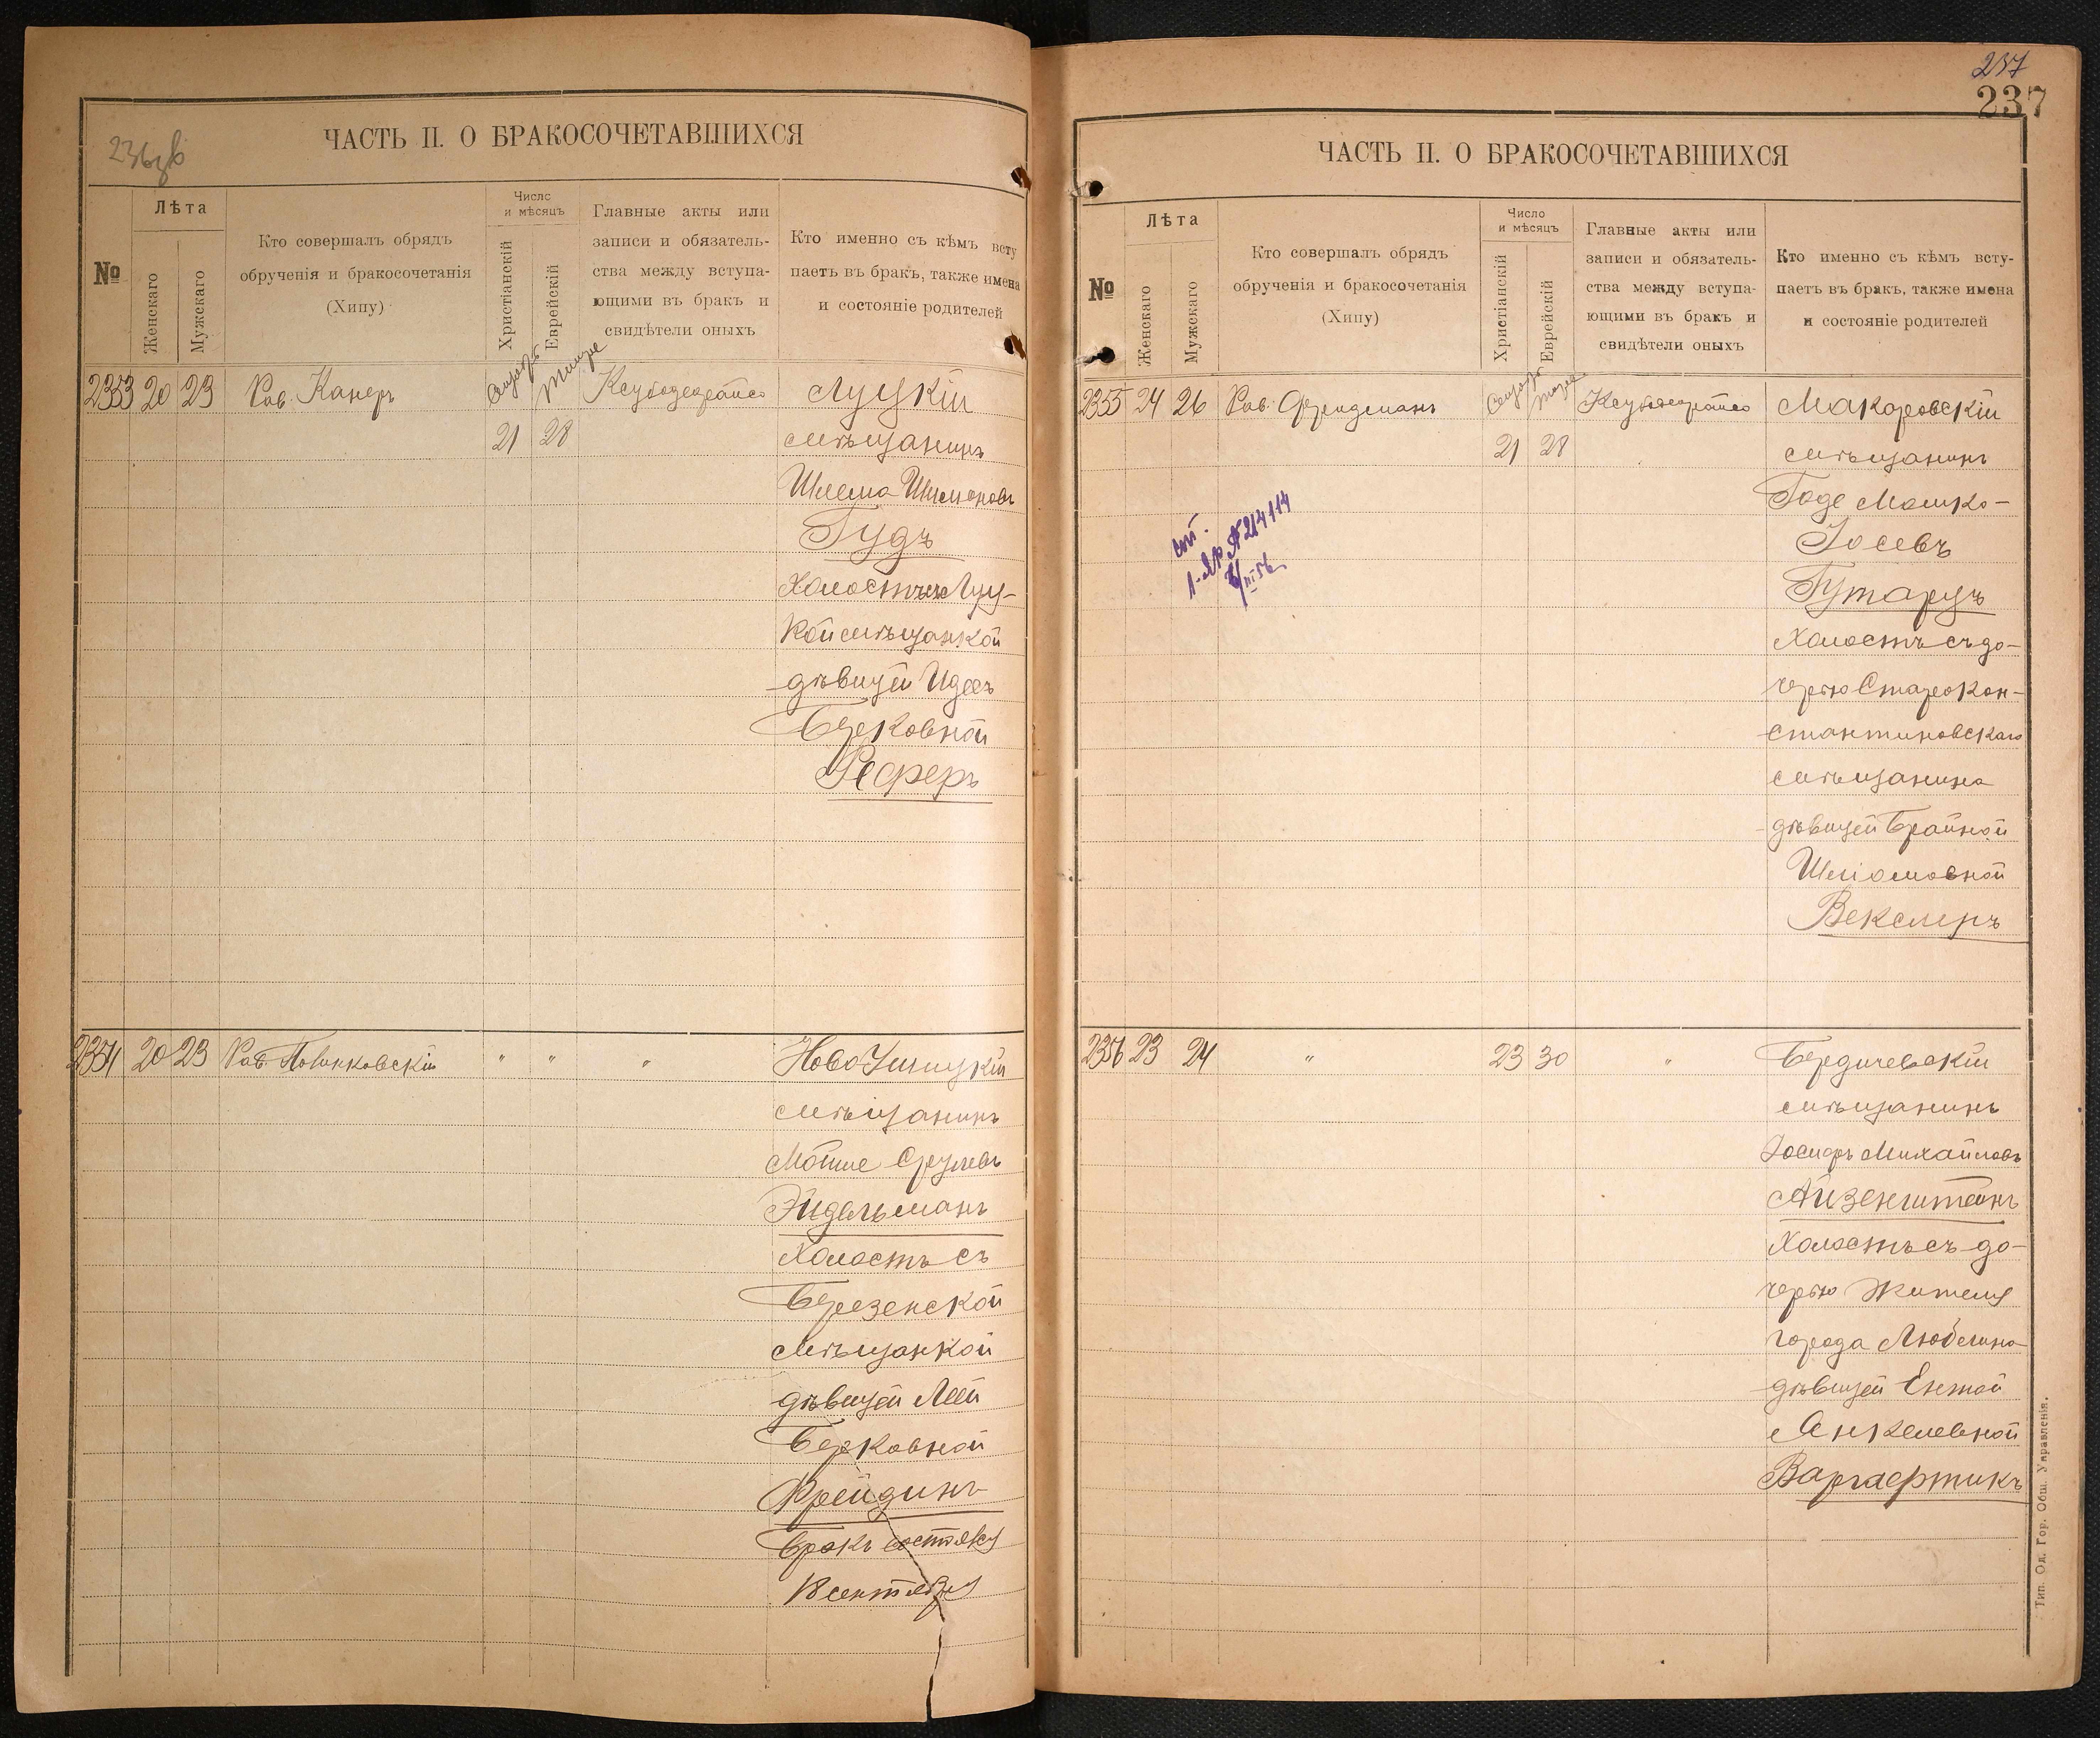 236об
ЧАСТЬ II. О БРАКОСОЧЕТАВШИХСЯ
№
Лѣта
Женскаго
Мужскаго
Кто совершалъ обрядъ
обрученія и бракосочетанія
(Хипу)
Число
и мѣсяцъ
Христіанскій
Еврейскій
Главные акты или
записи и обязатель-
ства между вступа-
ющими въ бракъ и
свидѣтели оныхъ
Кто именно съ кѣмъ всту
паетъ въ бракъ, также имена
и состояніе родителей
2353 20 23 Рав. Канеръ
21 28
Луцкій
мѣщанинъ
Шлема Шимоновъ
Гудъ
холостъ съ Луц-
кой мѣщанкой
дѣвицей Идесъ
Берковной
Реферъ
2354 20 23 " " "
НовоУшицкій
мѣщанинъ
Мотше Срулевъ
Эйдельманъ
холостъ съ
Березенской
мѣщанкой
дѣвицей Леей
Берковной
Крейдинъ
бракъ состоялся
18 сентября
237
237
ЧАСТЬ II. О БРАКОСОЧЕТАВШИХСЯ
№
Лѣта
Женскаго
Мужскаго
Кто совершалъ обрядъ
обрученія и бракосочетанія
(Хипу)
Число
и мѣсяцъ
Христіанскій
Еврейскій
Главные акты или
записи и обязатель-
ства между вступа-
ющими въ бракъ и
свидѣтели оныхъ
Кто именно съ кѣмъ всту-
паетъ въ бракъ, также имена
и состояніе родителей
2355 24 26 Рав. Фридманъ
21 28
№ 214114
Макаровскій
мѣщанинъ
Годе Мошко-
Іосевъ
Гутарцъ
холостъ съ до-
черью Старокон-
стантиновскаго
мѣщанина
дѣвицей Брайной
Шліомовной
Векслеръ
2356 23 24 " 23 30 "
Бердичевскій
мѣщанинъ
Іосифъ Михайловъ
Айзенштейнъ
холостъ съ до-
черью жителя
города Люблина
дѣвицей Ентой
Анкелевной
Варгафтикъ
Тип. Од. Гор. Общ. Управленія.